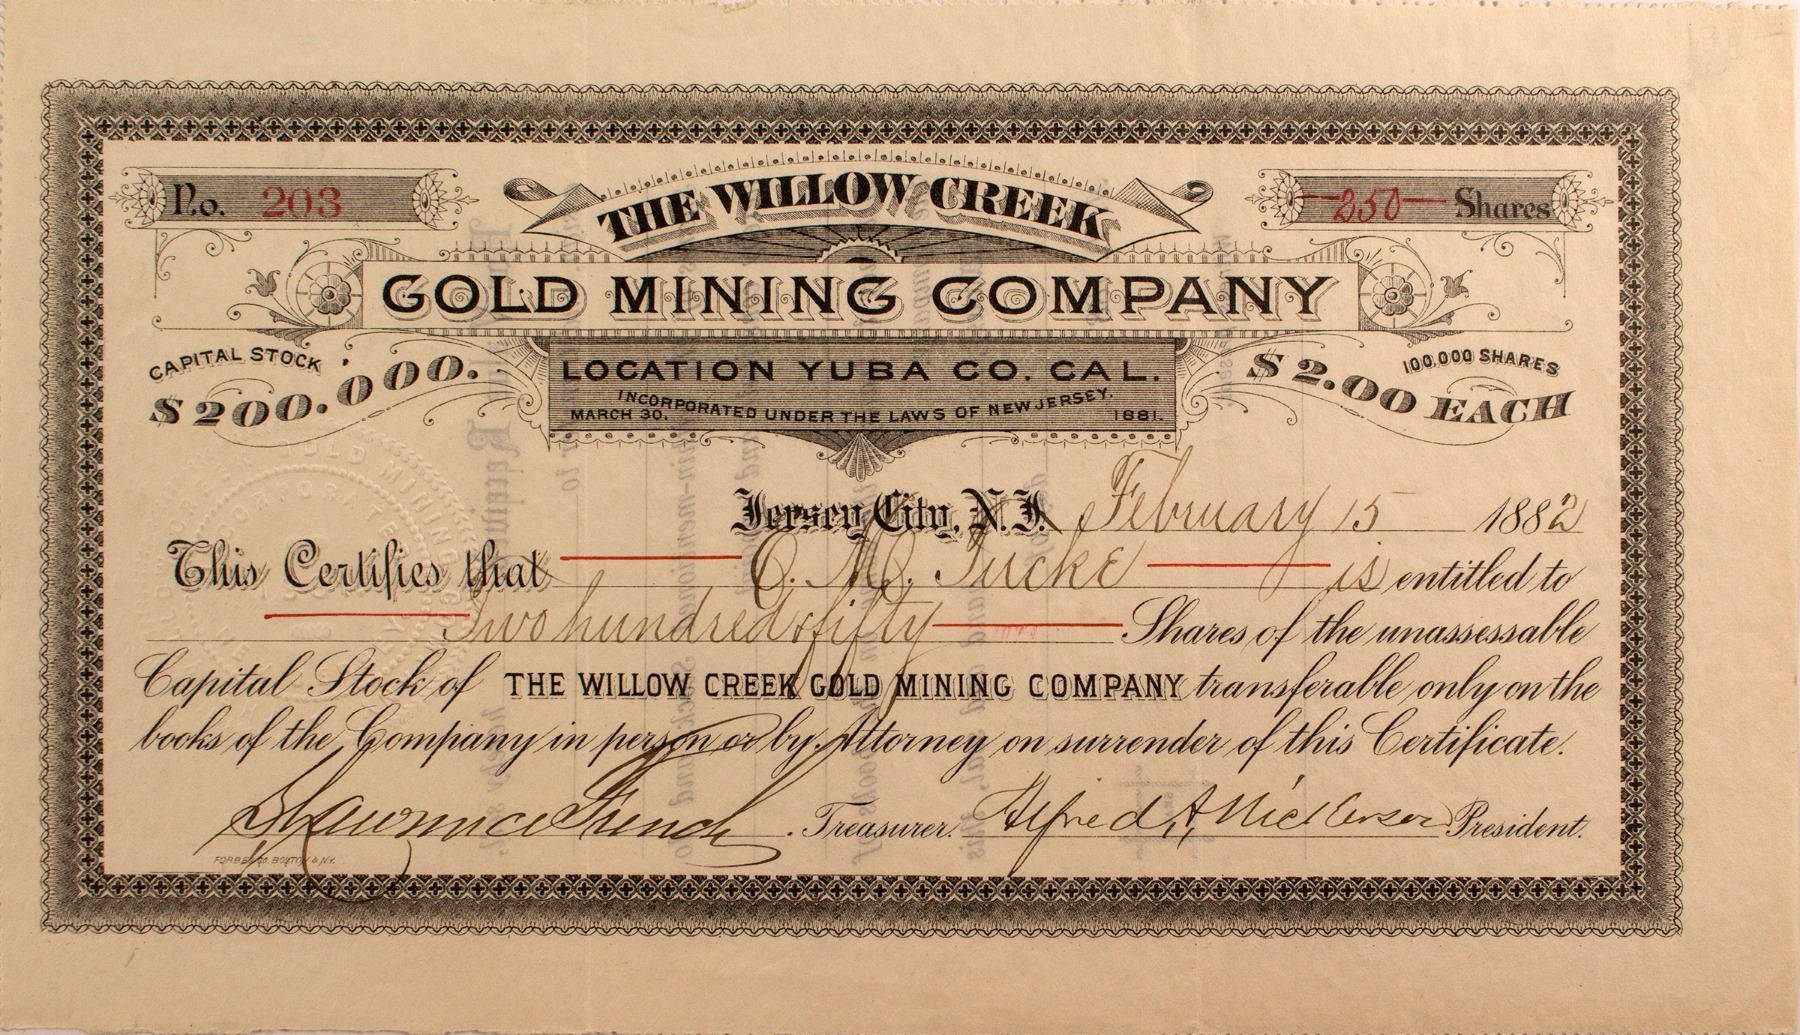 No. 203
250 Shares
THE WILLOW CREEK
GOLD MINING COMPANY
CAPITAL STOCK
$200.000.
LOCATION YUBA CO. CAL.
INCORPORATED UNDER THE LAWS OF NEW JERSEY.
MARCH 30. 1881.
100,000 SHARES
$2.00 EACH
Jersey City, N.J. February 15 1882
This Certifies that O. M. Tucke is entitled to
Two hundred & fifty Shares of the unassessable
Capital Stock of THE WILLOW CREEK GOLD MINING COMPANY transferable only on the
books of the Company in person or by Attorney on surrender of this Certificate.
French Treasurer. Alfred A Nickerson President.
FORBES CO. BOSTON & N.Y.